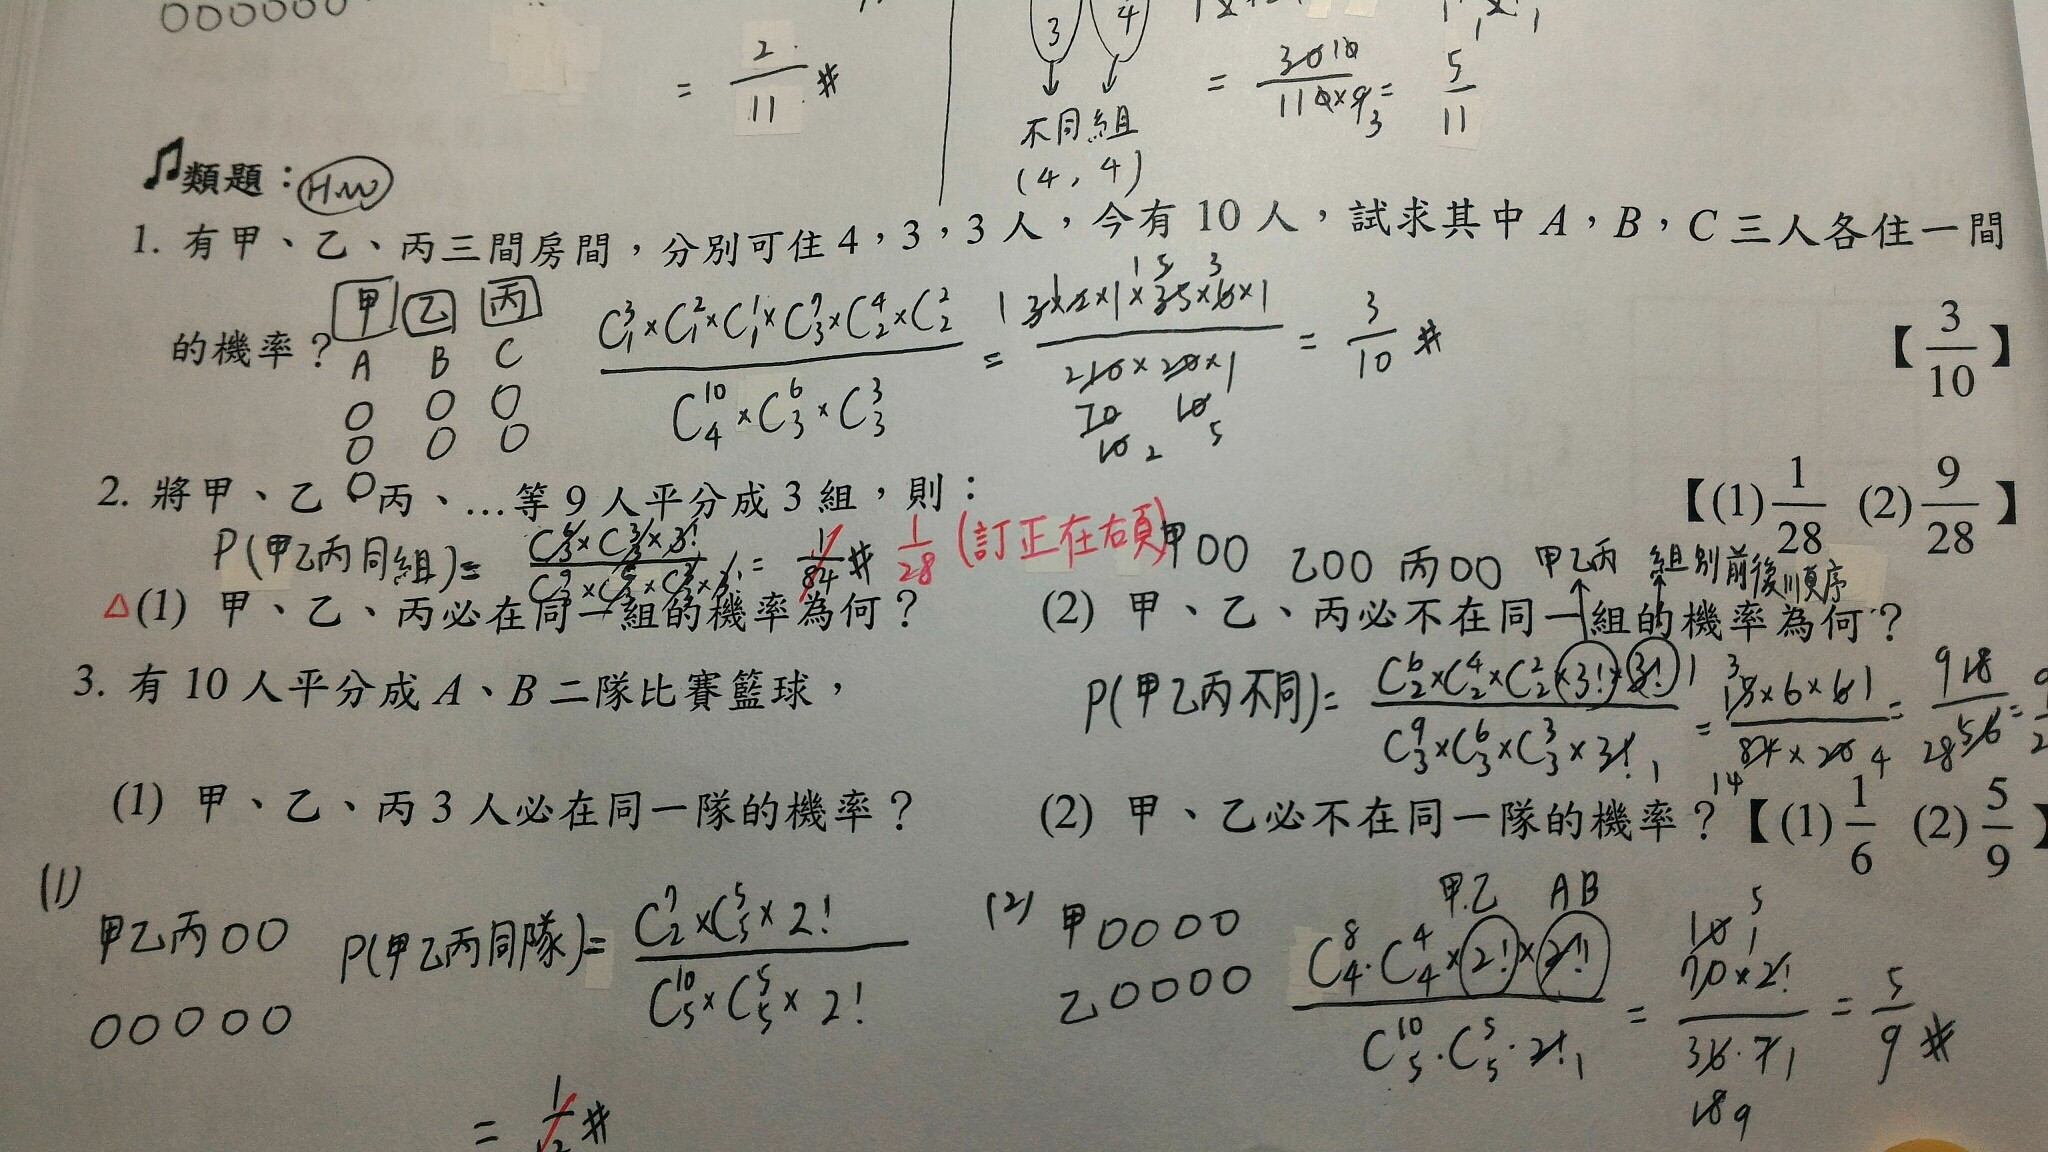 = 2/11 #
3 4
不同組
(4, 4)
= 3010/110×9 3 = 5/11
類題：HW
1. 有甲、乙、丙三間房間，分別可住4，3，3人，今有10人，試求其中A，B，C三人各住一間
的機率？ 【3/10】
甲 乙 丙
A B C
C³₁×C²₁×C¹₁×C⁷₃×C⁴₂×C²₂ / C¹⁰₄×C⁶₃×C³₃ = 3×2×1×35×6×1 / 210×20×1 = 3/10 #
2. 將甲、乙、丙、…等9人平分成3組，則： 【(1) 1/28 (2) 9/28】
P(甲乙丙同組)= = 1/84 # 1/28 (訂正在右頁)
甲OO 乙OO 丙OO 甲乙丙 組別前後順序
△(1) 甲、乙、丙必在同一組的機率為何？ (2) 甲、乙、丙必不在同一組的機率為何？
P(甲乙丙不同)= C⁶₂×C⁴₂×C²₂×3!×3! / C⁹₃×C⁶₃×C³₃×3! = 15×6×6 / 84×20 = 918/2856 =
3. 有10人平分成A、B二隊比賽籃球，
(1) 甲、乙、丙3人必在同一隊的機率？ (2) 甲、乙必不在同一隊的機率？【(1) 1/6 (2) 5/9】
(1)
甲乙丙OO
OOOOO
P(甲乙丙同隊)= C⁷₂×C⁵₅×2! / C¹⁰₅×C⁵₅×2!
= 1/12 #
(2) 甲OOOO
乙OOOO
甲乙 AB
C⁸₄·C⁴₄×2!×2! / C¹⁰₅·C⁵₅·2! = 70×2! / 36·7 = 5/9 #